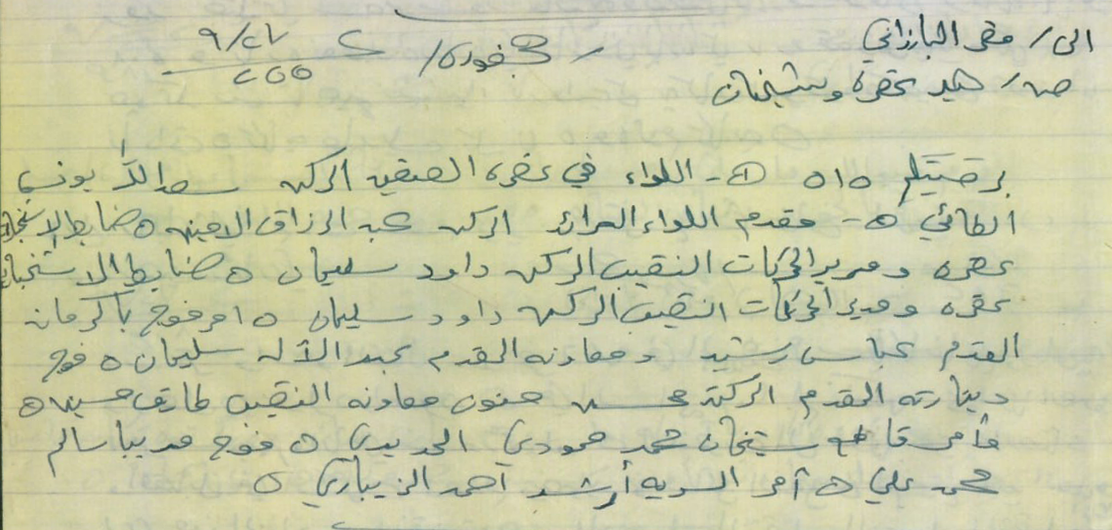 الى/ مقر البارزاني
فورى/ ٩/٢٧
من/ هيد عقره وشيخان
٢٥٥
برقيتكم ٥١٥ ٥- اللواء في عقره العقيد الركن سعدالله يونس
الطائي ٥- مقدم اللواء الرائد الركن عبد الرزاق الامين ٥ ضابط الاستخبارات
عقره ومدير الحركات النقيب الركن داود سليمان ٥ ضابط الاستخبارات
عقره ومدير الحركات النقيب الركن داود سليمان ٥ امر فوج باكرمان
المقدم عباس رشيد ومعاونه المقدم عبد الاله سليمان ٥ فوج
دينارته المقدم الركن حسن حنون معاونه النقيب طارق حسين ٥
وآمر قاطع شيخان محمد حمودي الحديدي ٥ فوج مريبا سالم
محمد علي ٥ آمر السريه أرشد احمد الزيباري ٥